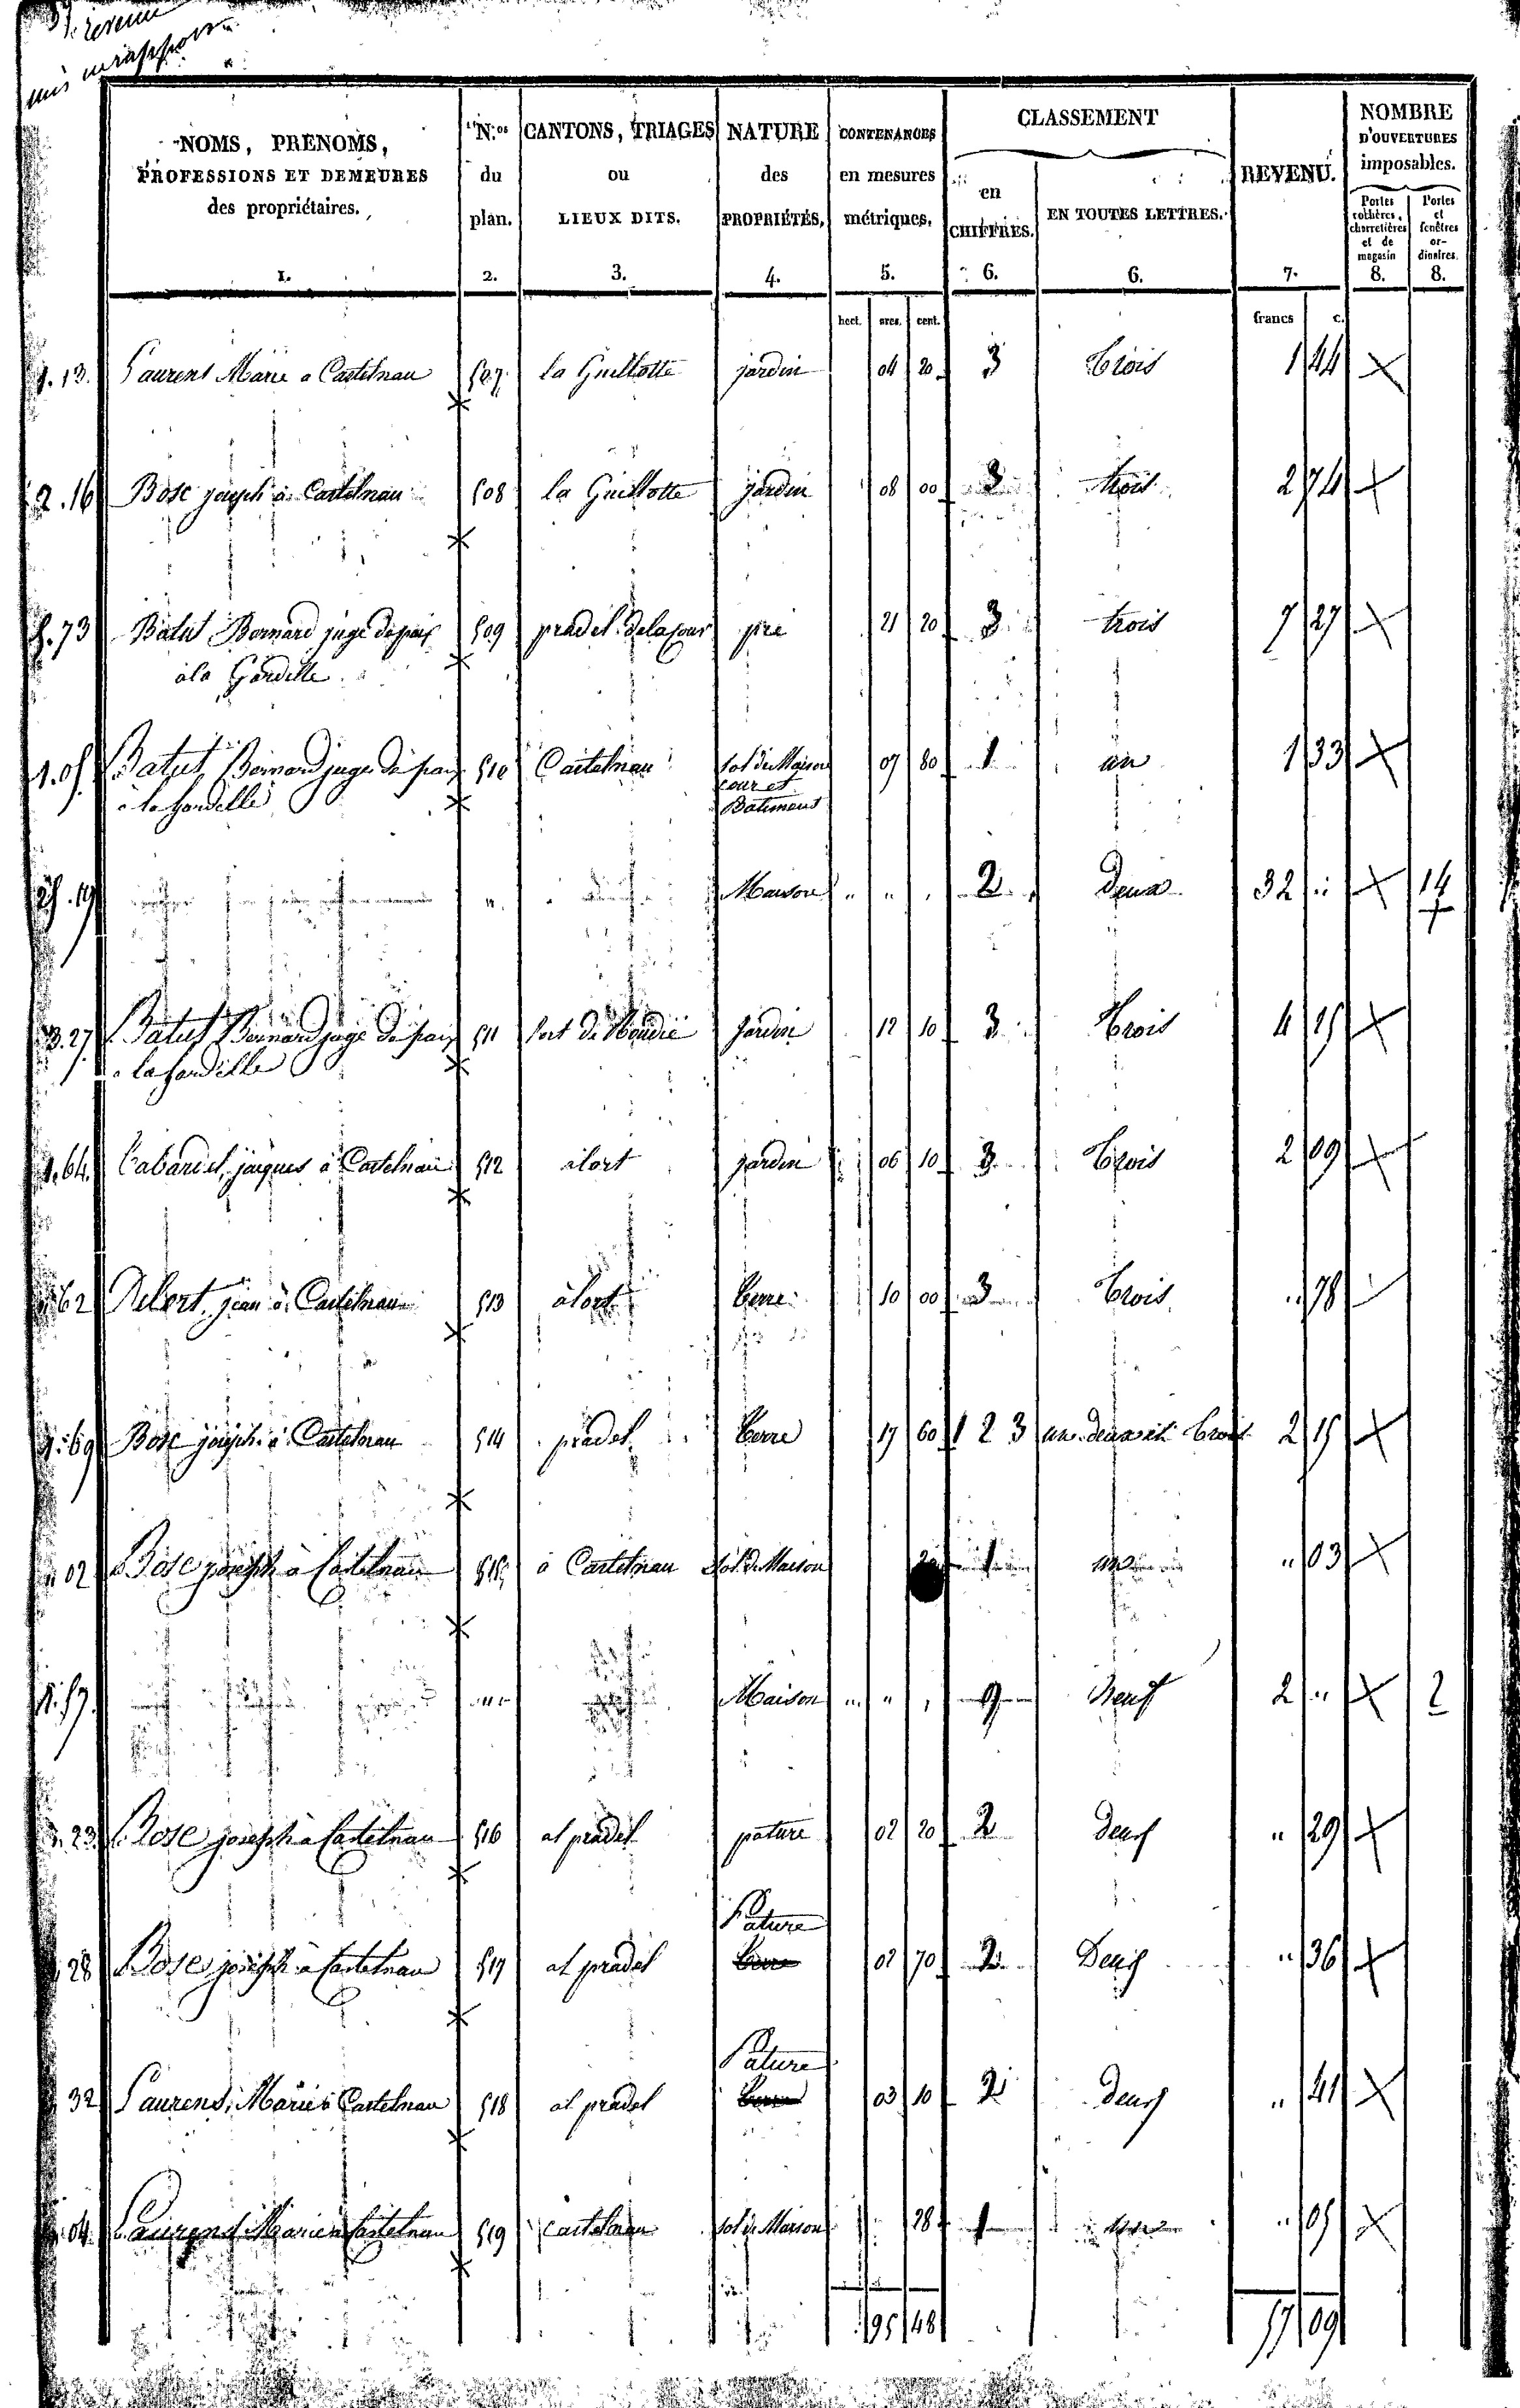 NOMS, PRÉNOMS, PROFESSIONS ET DEMEURES des propriétaires. 1.
N.os du plan. 2.
CANTONS, TRIAGES ou LIEUX DITS. 3.
NATURE des PROPRIÉTÉS. 4.
CONTENANCES en mesures métriques. 5.
CLASSEMENT
en CHIFFRES. 6.
EN TOUTES LETTRES. 6.
REVENU. 7.
NOMBRE D'OUVERTURES imposables.
Portes cochères, charretières et de magasin 8.
Portes et fenêtres ordinaires. 8.
hect. ares. cent. francs c.
1.13. Laurens Marie a Castelnau 507 la Guillotte jardin 04 20 3 trois 1 44
2.16 Bosc joseph à Castelnau 508 la Guillotte jardin 08 00 3 trois 2 74
73 Batut Bernard juge de paix 509 pradel delacour pré 21 20 3 trois 7 27
à la
1.05 Batut Bernard juge de paix 510 Castelnau sol de Maison 07 80 1 un 1 33
cour et
Batiment
25.19 " " Maison " " , 2 Deux 32 " 14
3.27 Batut Bernard juge de paix 511 jardin 12 10 3 trois 4 15
1.64 jacques à Castelnau 512 à lort jardin 06 10 3 trois 2 09
62 Delort jean à Castelnau 513 à lort terre 10 00 3 trois " 78
1.69 Bosc joseph à Castelnau 514 pradel terre 17 60 1 2 3 un deux et trois 2 15
" 02 Bosc joseph à Castelnau 515 à Castelnau Sol de Maison 20 1 un " 03
1.57 " Maison " " , 9 Neuf 2 " 2
23 Bosc joseph à Castelnau 516 al pradel pature 02 20 2 deux " 29
Pature
28 Bosc joseph à Castelnau 517 al pradel terre 02 70 2 Deux " 36
Pature
32 Laurens Marie à Castelnau 518 al pradel terre 03 10 2 deux " 41
04 Laurens Marie à Castelnau 519 Castelnau sol de Maison 28 1 " 05
95 48 57 09